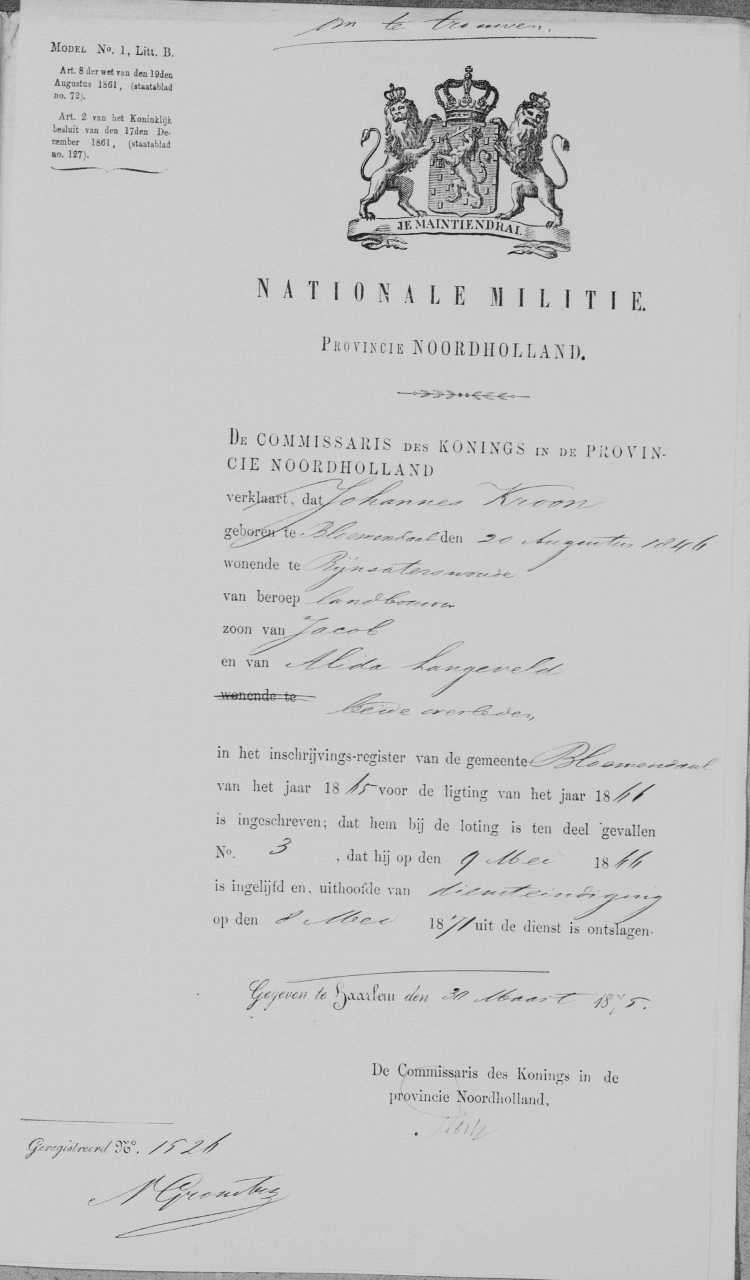 om te trouwen.
MODEL No. 1, Litt. B.
Art. 8 der wet van den 19den
Augustus 1861, (staatsblad
no. 72).
Art. 2 van het Koninklijk
besluit van den 17den De-
cember 1861, (staatsblad
no. 127).
JE MAINTIENDRAI.
NATIONALE MILITIE.
PROVINCIE NOORDHOLLAND.
DE COMMISSARIS DES KONINGS IN DE PROVIN-
CIE NOORDHOLLAND
verklaart, dat Johannes Kroon
geboren te Bloemendaal den 20 Augustus 1846
wonende te Rijnsaterswoude
van beroep landbouwer
zoon van Jacob
en van Alida Langeveld
wonende te beide overleden
in het inschrijvings-register van de gemeente Bloemendaal
van het jaar 1865 voor de ligting van het jaar 1866
is ingeschreven; dat hem bij de loting is ten deel gevallen
No. 3, dat hij op den 9 Mei 1866
is ingelijfd en, uithoofde van diensteindiging
op den 8 Mei 1871 uit de dienst is ontslagen.
Gegeven te Haarlem den 30 Maart 1875.
De Commissaris des Konings in de
provincie Noordholland,
Geregistreerd No. 1526